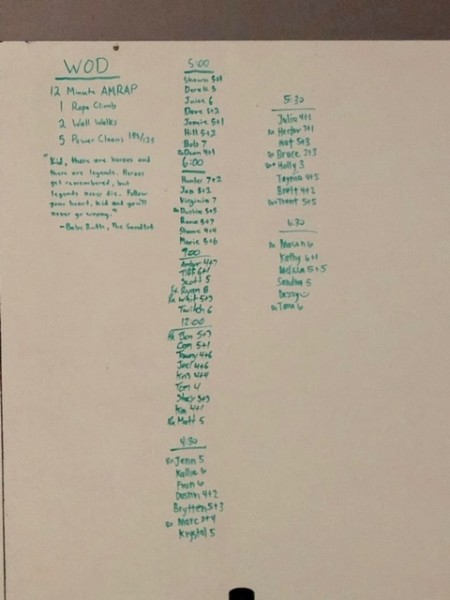 WOD
12 Minute AMRAP
1 Rope Climb
2 Wall Walks
5 Power Cleans
"Kid, there are heroes and
there are legends. Heroes
get remembered, but
legends never die. Follow
your heart, kid and you'll
never go wrong."
-Babe Ruth, The Sandlot
5:00
Shawn
Derek 3
Juice 6
Dave 5+2
Jamie 5+1
Hill 5+2
Bob 7
4+1
6:00
Hunter 7+2
Jan 3+2
Virginia 7
Dustin 5+5
7
Shane 4+4
Marie 5+6
9:00
Amber 4+7
Tiff 6+1
Scott 5
Ryan 8
Whit 5+3
Twitch 6
12:00
Ben 5+3
5+1
4+6
Joel 4+6
Kris 4+4
Tom 4
Stacy 3+3
Kim 4+1
Matt 5
4:30
Jenn 5
Kallie 6
6
Dustin 4+2
Brytten 5+3
Marc 3+4
Krystal 5
5:30
Julia 4+1
Hector 3+1
Nat 5+3
Bruce 2+3
Holly 3
4+2
Brett 4+2
Trent 5+5
6:30
6
Kelly 6+1
5+5
Sandra 5
Tom 6